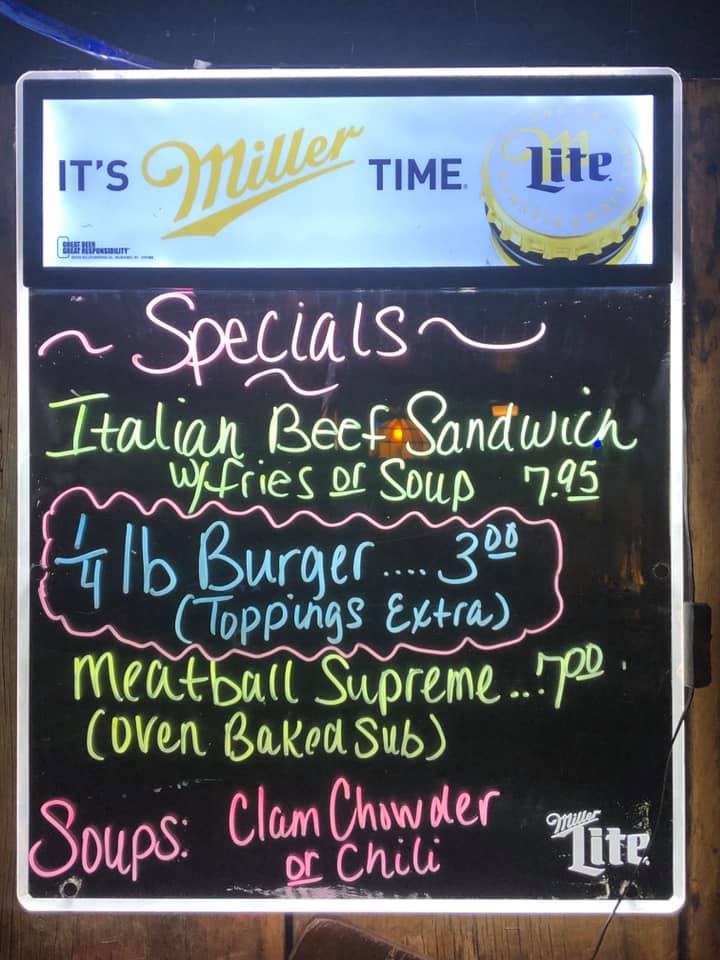 IT'S Miller TIME. Lite
GREAT BEER
GREAT RESPONSIBILITY
~ Specials ~
Italian Beef Sandwich
w/fries or Soup 7.95
1/4 lb Burger .... 3.00
(Toppings Extra)
Meatball Supreme ... 7.00
(Oven Baked Sub)
Soups: Clam Chowder
or Chili
Miller
Lite